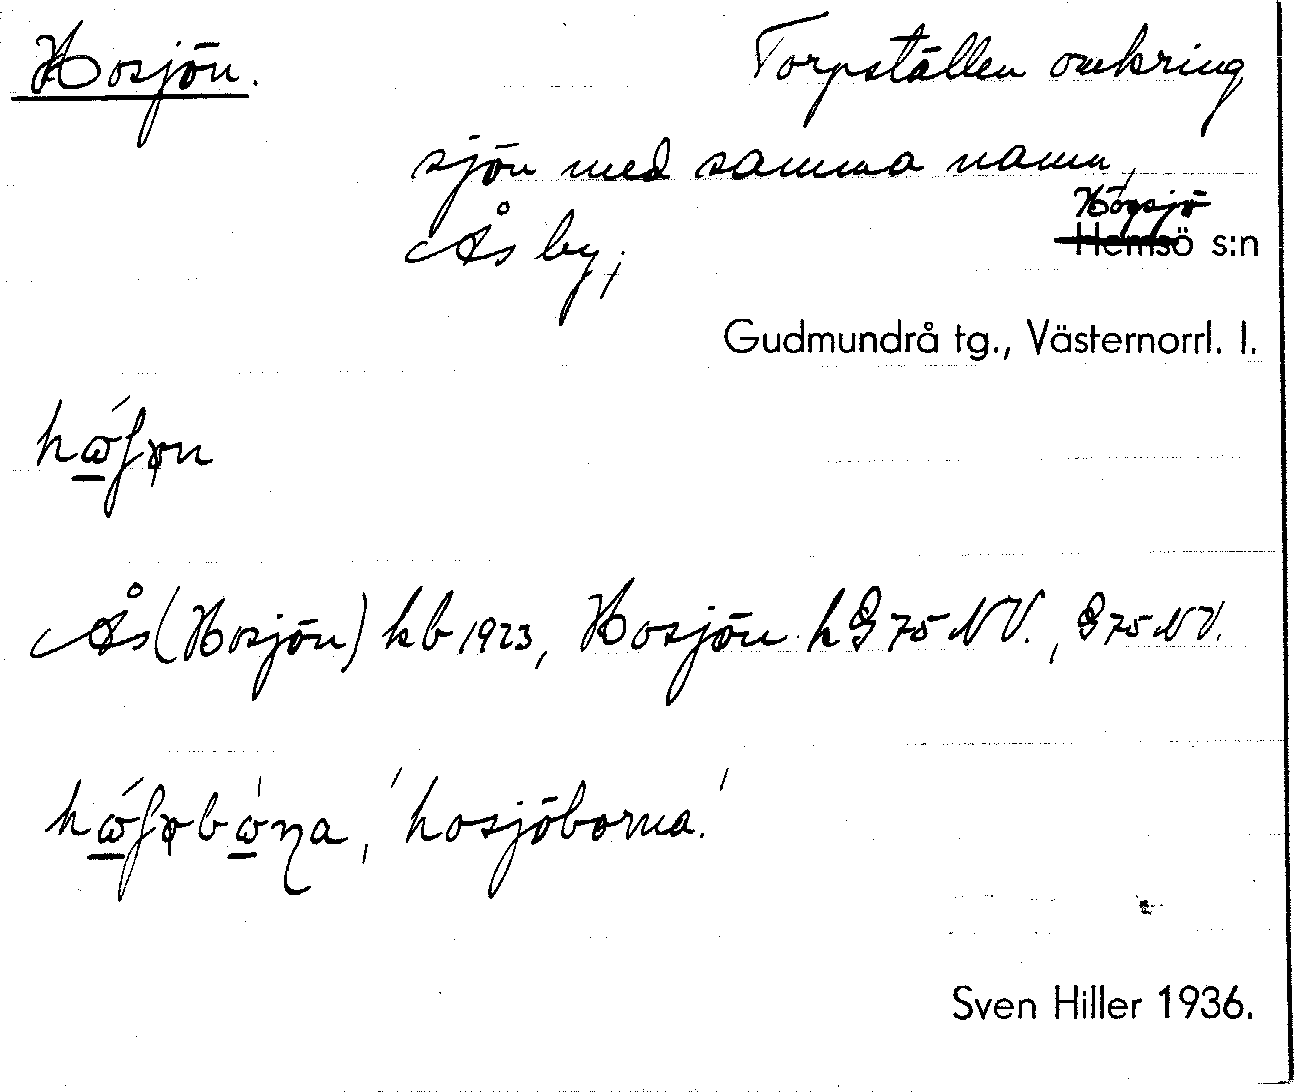 Hosjön. Torpställen omkring
sjön med samma namn,
Högsjö
Ås by, Hemsö s:n
Gudmundrå tg., Västernorrl. l.
Ås (Hosjön) kb 1923, Hosjön h G 75 NV., G 75 NV.
'hosjöborna.'
Sven Hiller 1936.